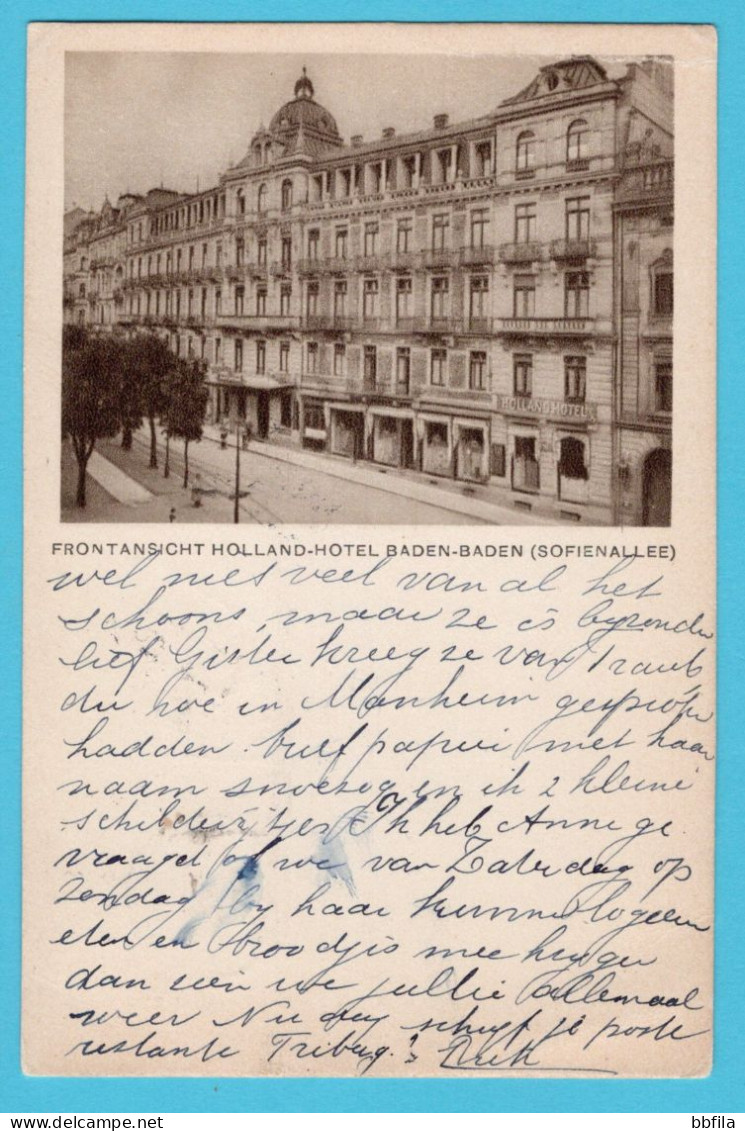 HOLLAND HOTEL
FRONTANSICHT HOLLAND-HOTEL BADEN-BADEN (SOFIENALLEE)
wel niet veel van al het
schoons, maar ze is byzonder
lief Gister kreeg ze van Traub,
die we in Manheim gesproken
hadden brief papier met haar
naam en ik 2 kleine
schilderijtjes Ik heb Annie ge
vraagd of we van Zaterdag op
Zondag by haar kunnen logeeren
eten en broodjes mee krygen
dan zien we jullie allemaal
weer Nu dag schryf je poste
restante
delcampe.net
bbfila